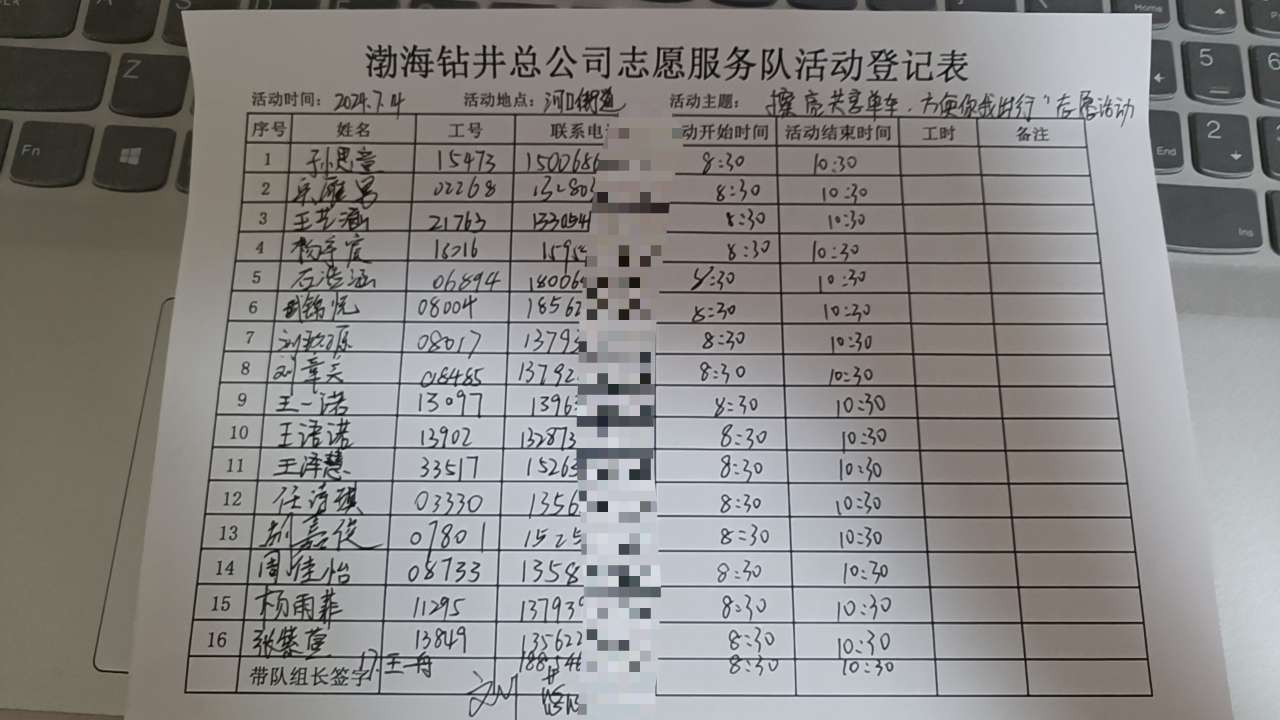 渤海钻井总公司志愿服务队活动登记表
活动时间：2024.7.4 活动地点：河口街道 活动主题：擦 共享单车.方便你我出行"志愿活动
序号 姓名 工号 联系电 动开始时间 活动结束时间 工时 备注
1 孙思童 15473 1500686 8:30 10:30
2 02268 132803 8:30 10:30
3 王艺涵 21763 1330541 8:30 10:30
4 杨 15954 8:30 10:30
5 石浩涵 06894 180064 8:30 10:30
6 锦悦 08004 18562 8:30 10:30
7 刘 源 08017 13793 8:30 10:30
8 刘 018485 13792 8:30 10:30
9 王一诺 13097 13963 8:30 10:30
10 王语诺 13902 132873 8:30 10:30
11 王泽慧 33517 15263 8:30 10:30
12 任诗琪 03330 1356 8:30 10:30
13 嘉俊 07801 1525 8:30 10:30
14 周佳怡 08733 1358 8:30 10:30
15 杨雨菲 11295 13793 8:30 10:30
16 张紫萱 13849 135622 8:30 10:30
带队组长签字 17.王一冉 188546 8:30 10:30